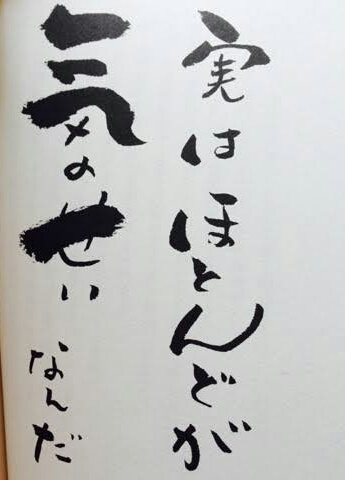 実はほとんどが
気のせい
なんだ